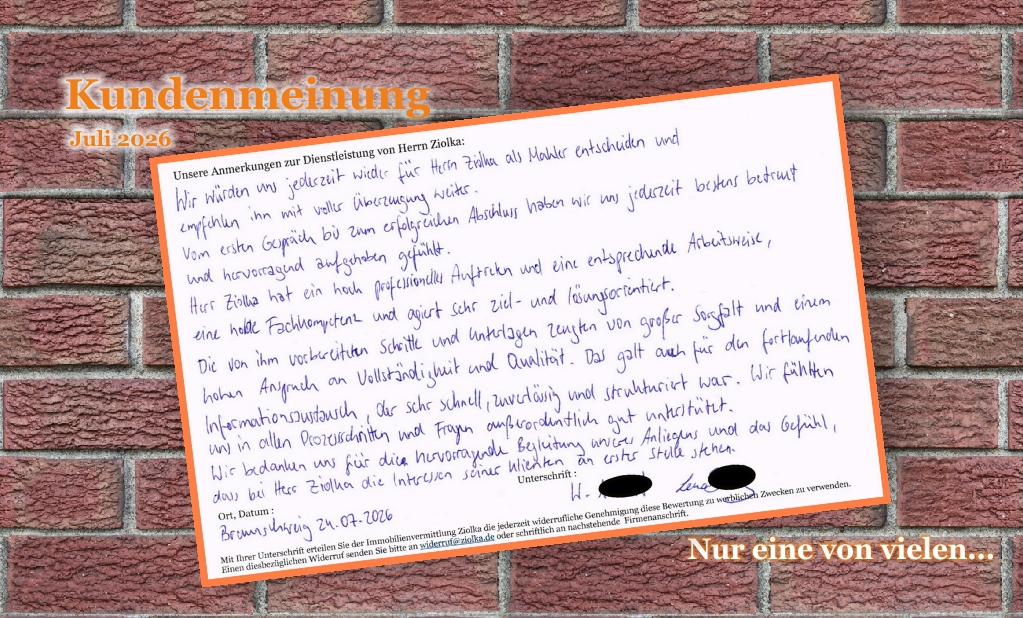 Kundenmeinung
Juli 2026
Unsere Anmerkungen zur Dienstleistung von Herrn Ziolka:
Wir würden uns jederzeit wieder für Herrn Ziolka als Makler entscheiden und
empfehlen ihn mit voller Überzeugung weiter.
Vom ersten Gespräch bis zum erfolgreichen Abschluss haben wir uns jederzeit bestens betreut
und hervorragend aufgehoben gefühlt.
Herr Ziolka hat ein hoch professionelles Auftreten und eine entsprechende Arbeitsweise,
eine hohe Fachkompetenz und agiert sehr ziel- und lösungsorientiert.
Die von ihm vorbereiteten Schritte und Unterlagen zeugten von großer Sorgfalt und einem
hohen Anspruch an Vollständigkeit und Qualität. Das galt auch für den fortlaufenden
Informationsaustausch, der sehr schnell, zuverlässig und strukturiert war. Wir fühlten
uns in allen Prozessschritten und Fragen außerordentlich gut unterstützt.
Wir bedanken uns für die hervorragende Begleitung unseres Anliegens und das Gefühl,
dass bei Herr Ziolka die Interessen seiner Klienten an erster Stelle stehen.
Ort, Datum :
Unterschrift :
Braunschweig 24.07.2026
W.
Lena
Mit Ihrer Unterschrift erteilen Sie der Immobilienvermittlung Ziolka die jederzeit widerrufliche Genehmigung diese Bewertung zu werblichen Zwecken zu verwenden.
Einen diesbezüglichen Widerruf senden Sie bitte an widerruf@ziolka.de oder schriftlich an nachstehende Firmenanschrift.
Nur eine von vielen...